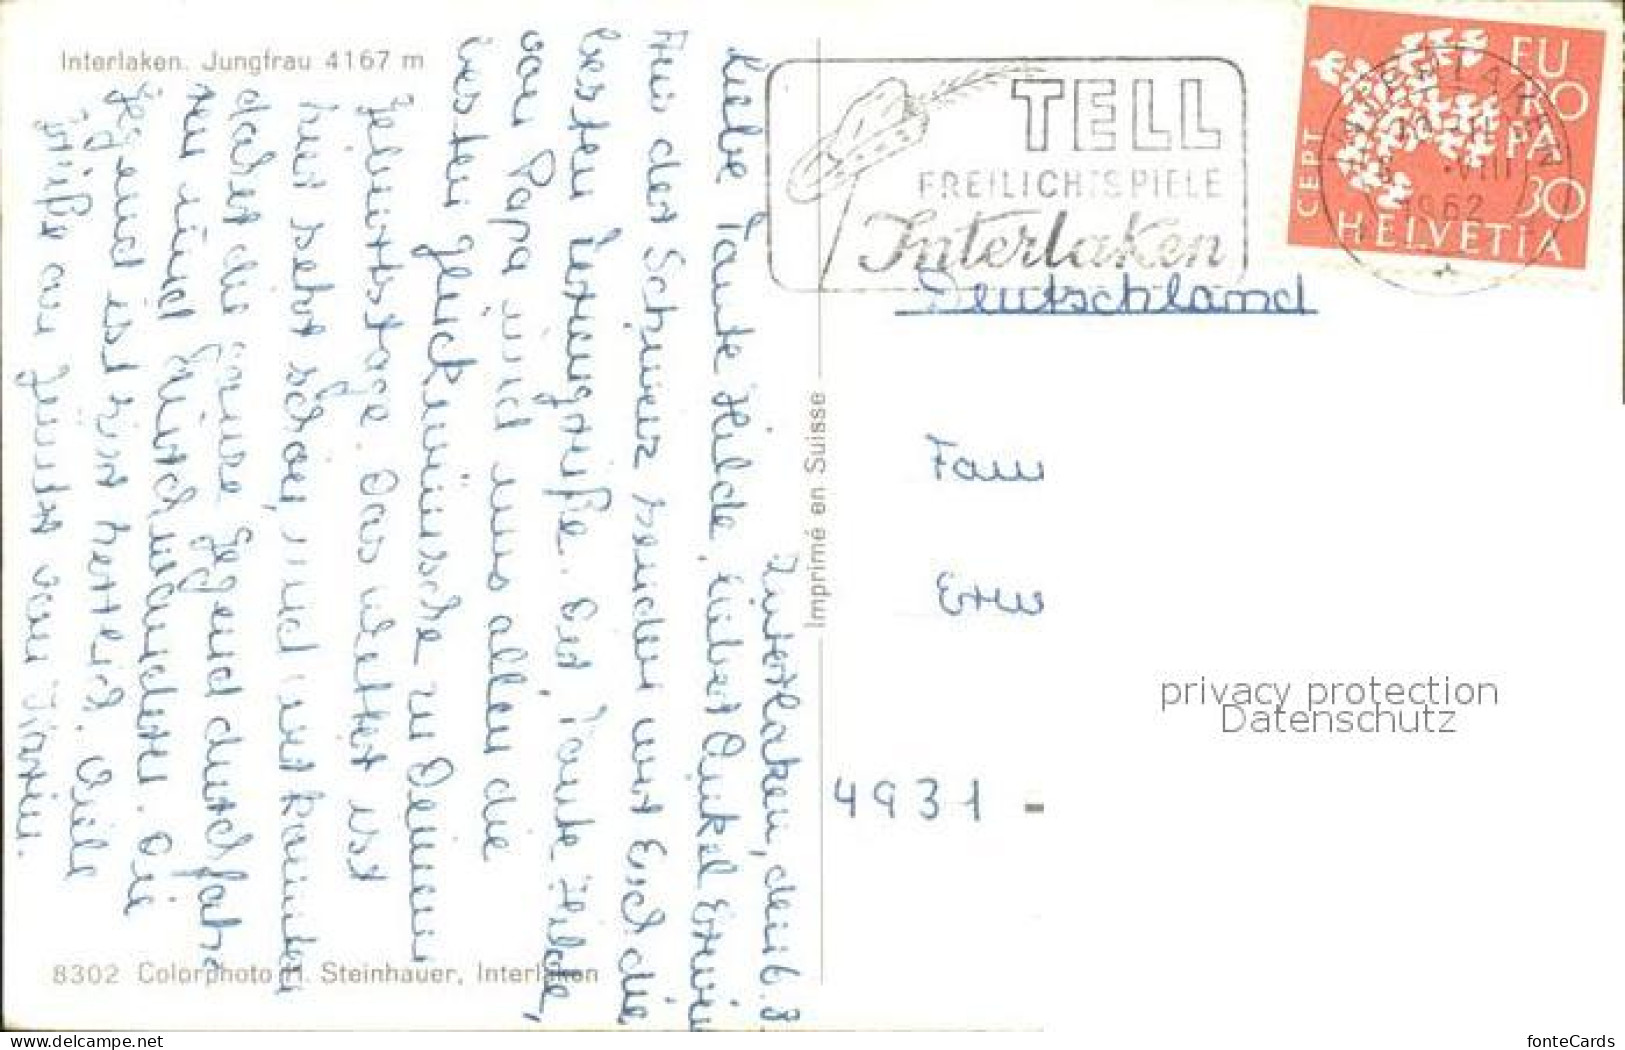 Interlaken. Jungfrau 4167 m
TELL
FREILICHTSPIELE
Interlaken
EU
RO
PA
CEPT
30
HELVETIA
INTERLAKEN
VIII
1962
Interlaken, den 6. 8.
Liebe Tante Hilde, lieber Onkel Erwin
Aus der Schweiz senden wir Euch die
besten Feriengrüße. Dir, Tante Hilde,
von Papa und uns allen die
besten Glückwünsche zu Deinem
Geburtstage. Das Wetter ist
hier sehr schön, und wir konnten
daher die ganze Gegend durchfah-
ren und durchwandern. Die
Gegend ist hier herrlich. Viele
Grüße an Günter von
Deutschland
Fam
Erw
4931 -
Imprimé en Suisse
8302 Colorphoto H. Steinhauer, Interlaken
privacy protection
Datenschutz
www.delcampe.net
fonteCards